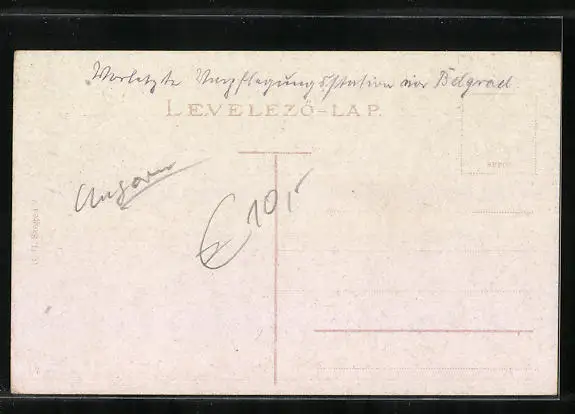 Vorletzte Verpflegungsstation vor Belgrad
LEVELEZŐ-LAP.
Ungarn
€ 10,-